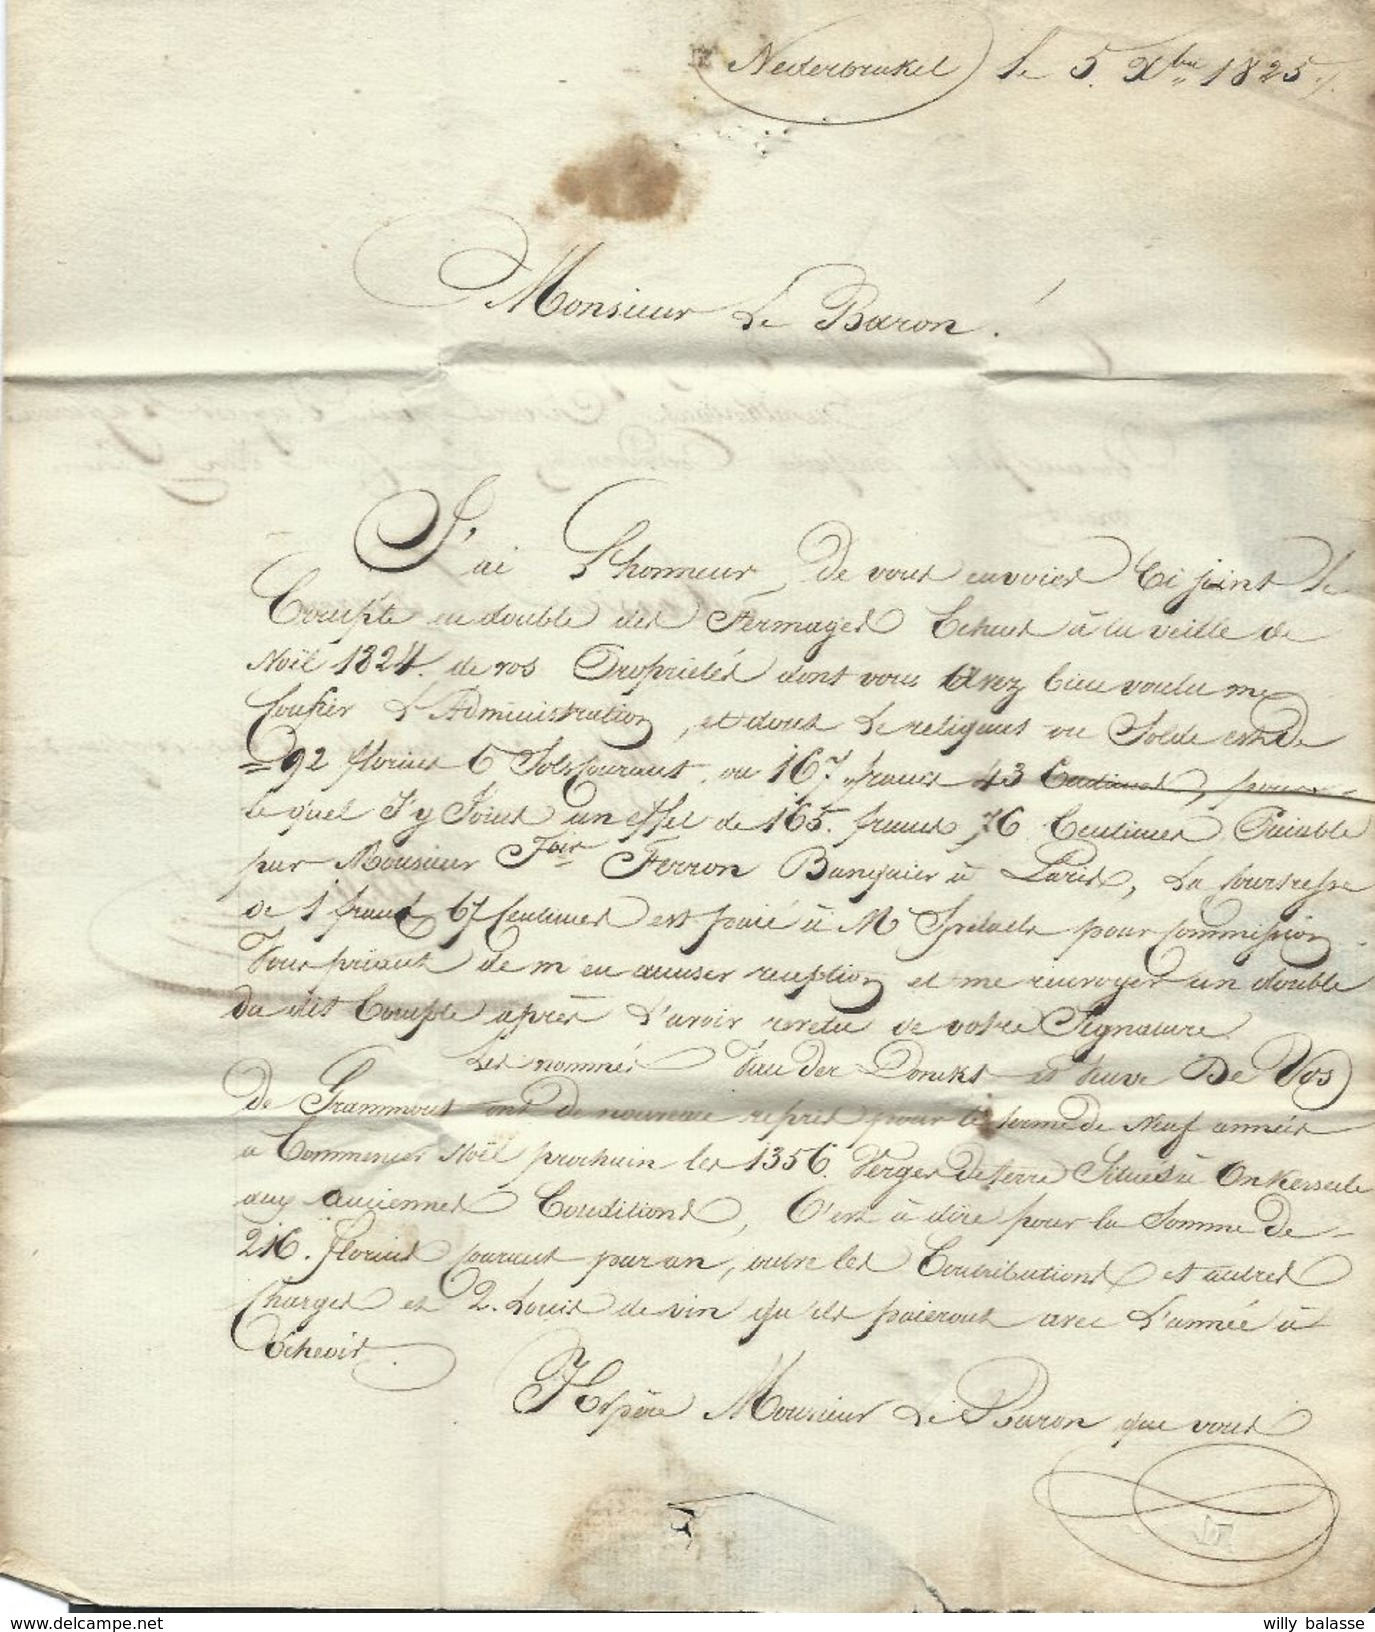 Nederbrakel le 5. Xbre 1825.
Monsieur Le Baron.
J'ai L'honneur de vous envoier Ci joint le
Compte en double des Fermages Echus à la veille de
Noël 1824. de vos Propriétés dont vous avez bien voulu me
Confier L'Administration, et dont Le reliquat ou Solde est de
92 florins 6 Sols Courant ou 167 francs 43 Centimes, pour
le quel J'y Joins un effet de 165. francs 76 Centimes Paiable
par Monsieur Ferron Banquier à Paris, La
de 1 franc 67 Centimes est paié à Mr pour Commission
Vous priant de m'en accuser reception et me renvoyer un double
du dit Compte après L'avoir revetu de votre Signature
Les nommés Van der Donckt et veuve De Vos
De Grammont ont de nouveau repris pour le terme de Neuf années
a Commencer Noël prochain les 1356. Verges de terre Situés à Onkerzeele
aux anciennes Conditions, C'est à dire pour la Somme De
216. florins Courant par an, outre les Contributions et autres
Charges et 2. Louis de vin qu'ils paieront avec L'année à
Echeoir.
J'Espère Monsieur Le Baron que vous
willy balasse